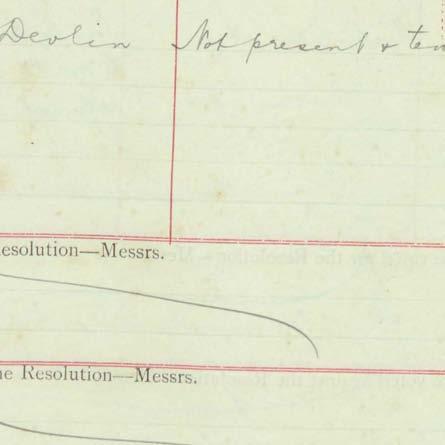 Devlin Not present & ten
esolution—Messrs.
he Resolution—Messrs.